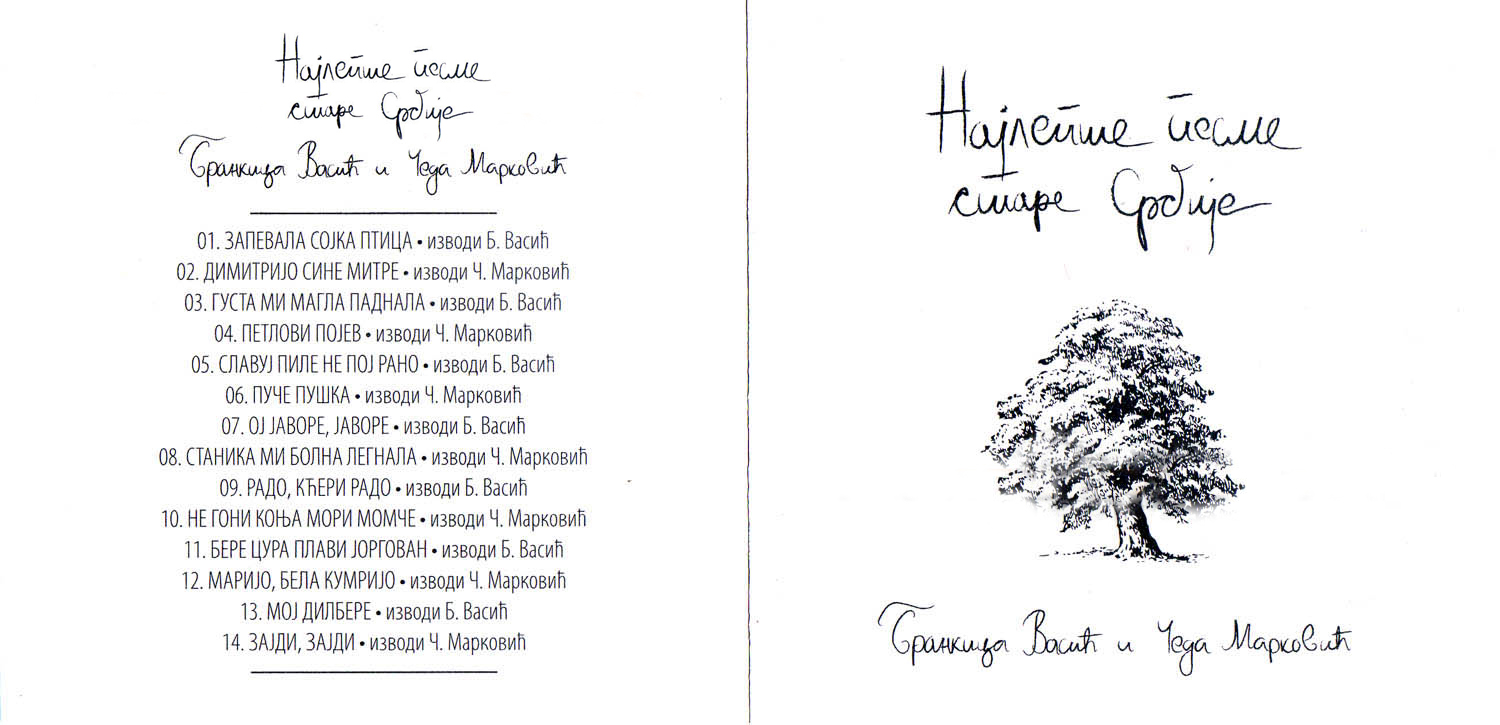 Најлепше песме
старе Србије
Бранкица Васић и Чеда Марковић
01. ЗАПЕВАЛА СОЈКА ПТИЦА • изводи Б. Васић
02. ДИМИТРИЈО СИНЕ МИТРЕ • изводи Ч. Марковић
03. ГУСТА МИ МАГЛА ПАДНАЛА • изводи Б. Васић
04. ПЕТЛОВИ ПОЈЕВ • изводи Ч. Марковић
05. СЛАВУЈ ПИЛЕ НЕ ПОЈ РАНО • изводи Б. Васић
06. ПУЧЕ ПУШКА • изводи Ч. Марковић
07. ОЈ ЈАВОРЕ, ЈАВОРЕ • изводи Б. Васић
08. СТАНИКА МИ БОЛНА ЛЕГНАЛА • изводи Ч. Марковић
09. РАДО, КЋЕРИ РАДО • изводи Б. Васић
10. НЕ ГОНИ КОЊА МОРИ МОМЧЕ • изводи Ч. Марковић
11. БЕРЕ ЦУРА ПЛАВИ ЈОРГОВАН • изводи Б. Васић
12. МАРИЈО, БЕЛА КУМРИЈО • изводи Ч. Марковић
13. МОЈ ДИЛБЕРЕ • изводи Б. Васић
14. ЗАЈДИ, ЗАЈДИ • изводи Ч. Марковић
Најлепше песме
старе Србије
Бранкица Васић и Чеда Марковић